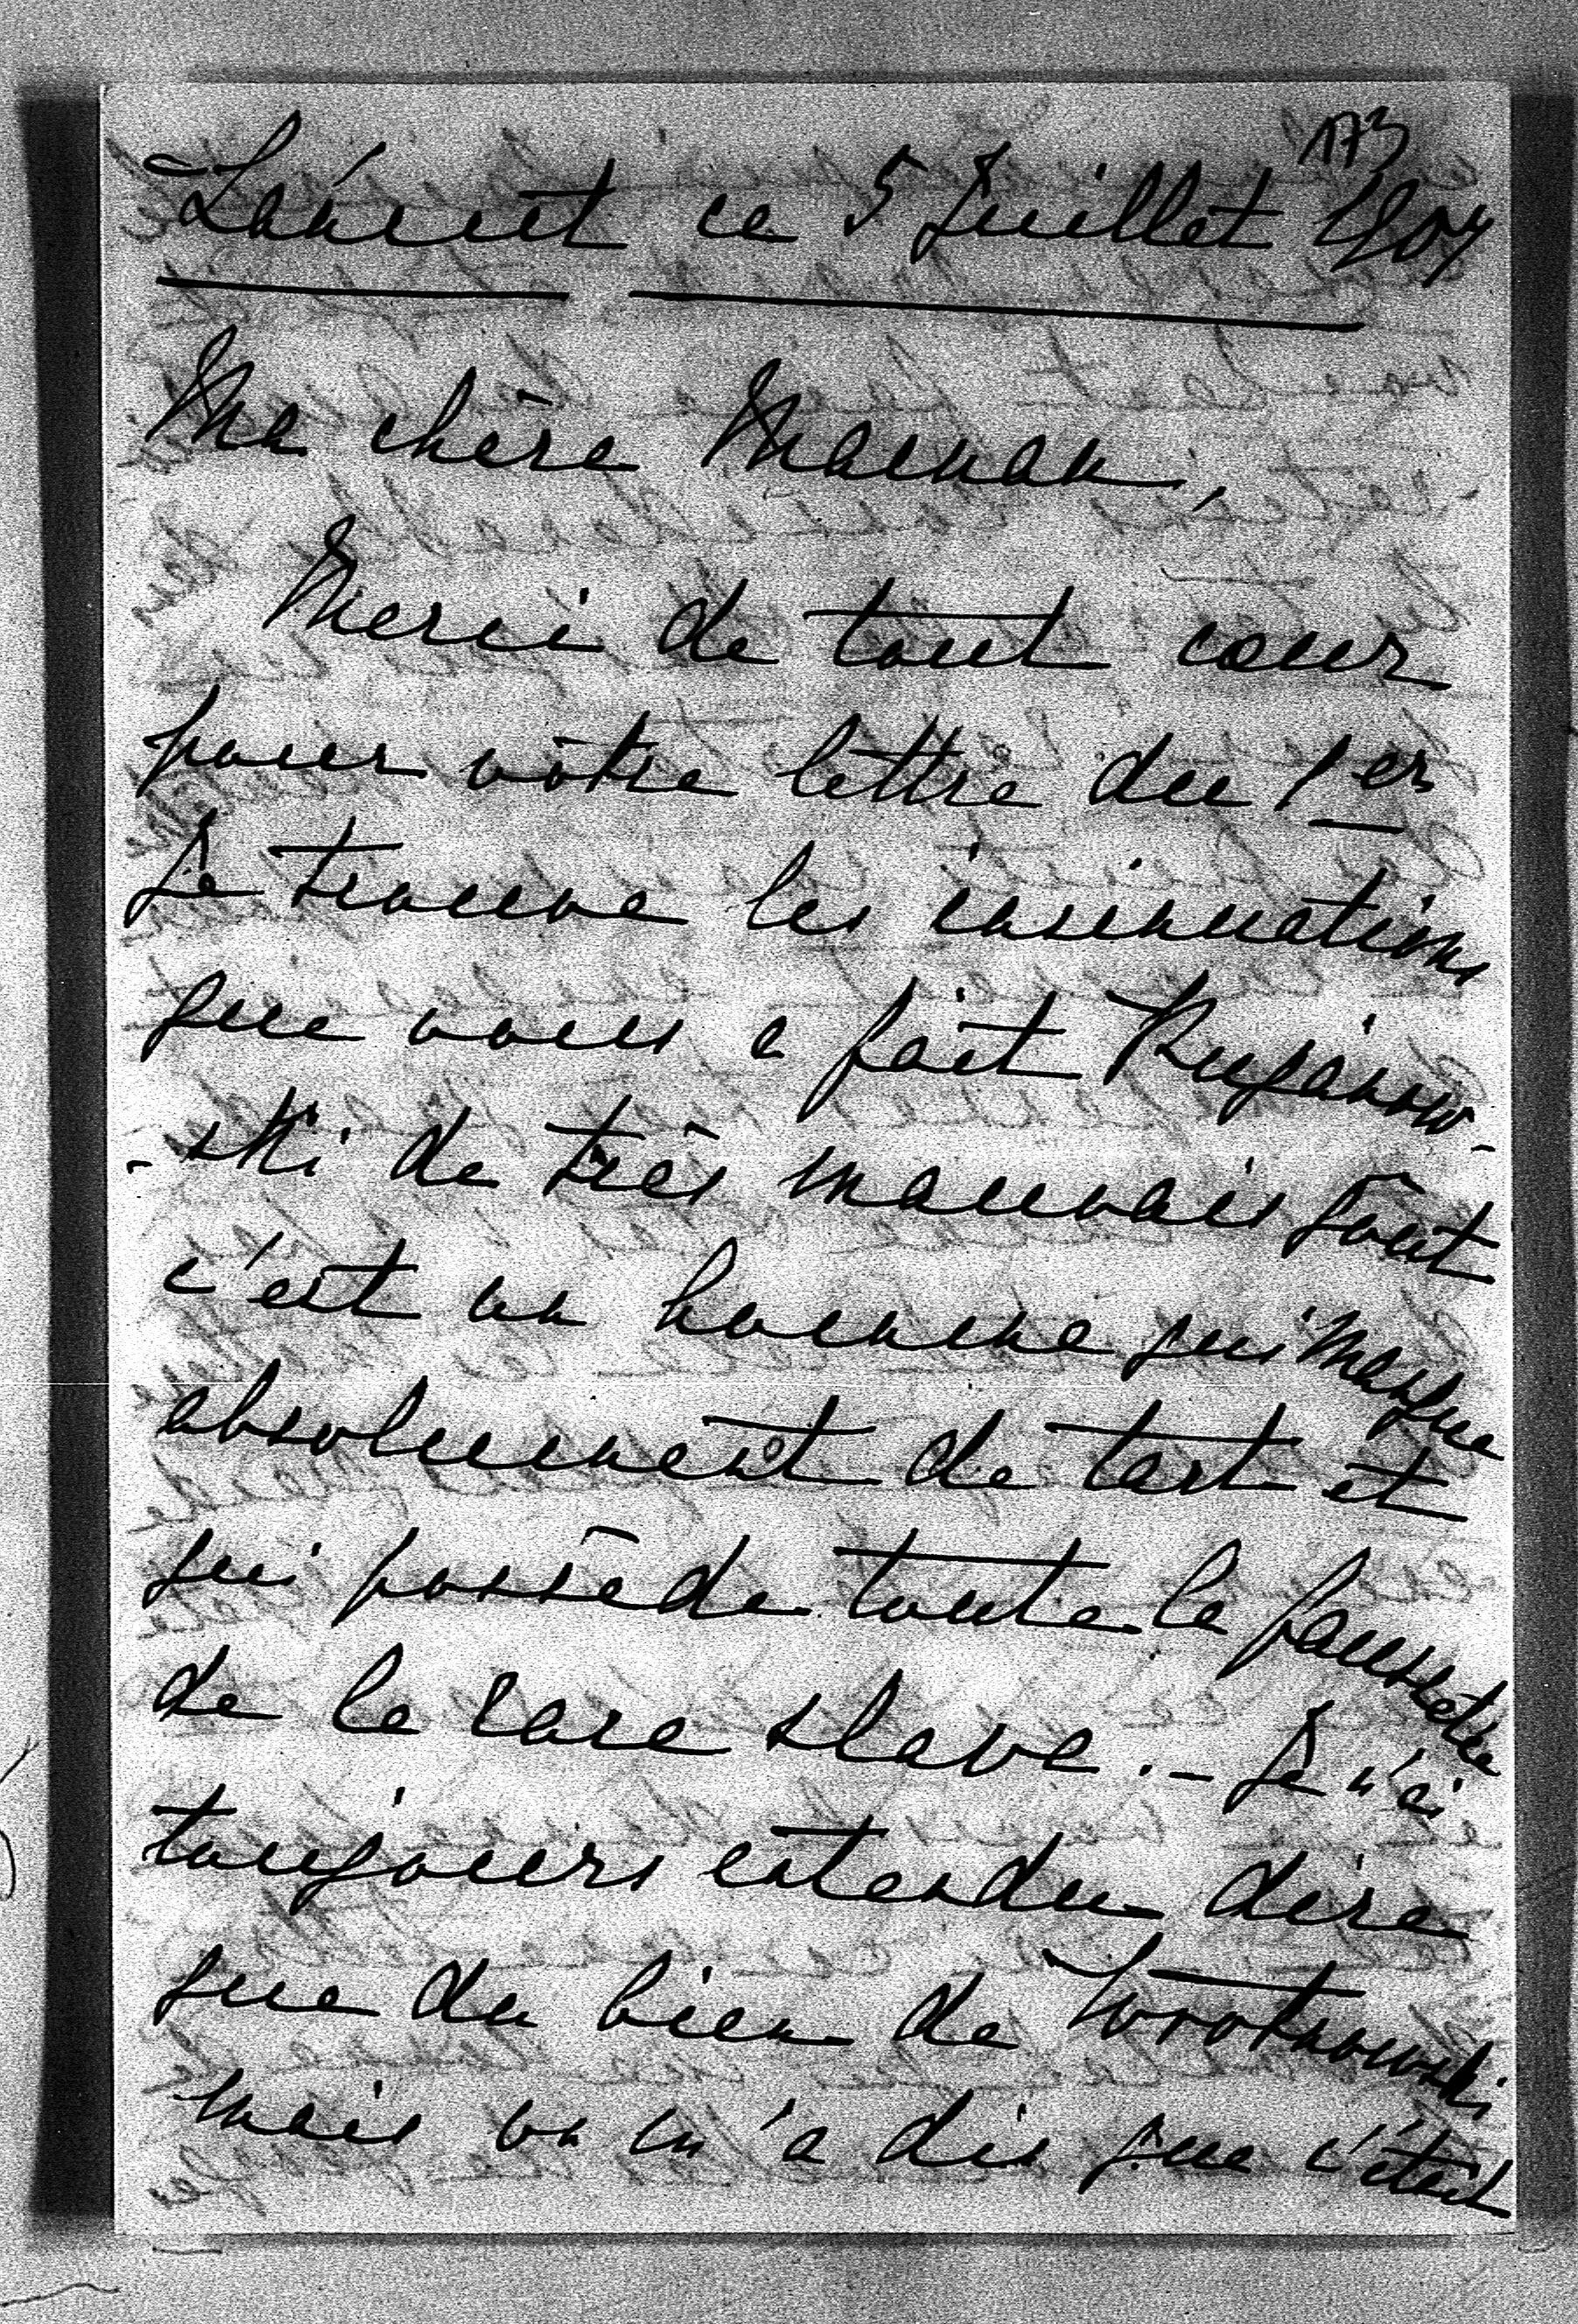 173
Łańcut ce 5 Juillet 1904
Ma chère Maman,
Merci de tout coeur
pour vôtre lettre du 1er
Je trouve les insinuations
que vous a fait
-ski de très mauvais goût
c'est un homme qui manque
absolument de tact et
qui possède toute la fausseté
de la race slave. - Je n'ai
toujours entendu dire
que du bien de
mais on m'a dis que c'était